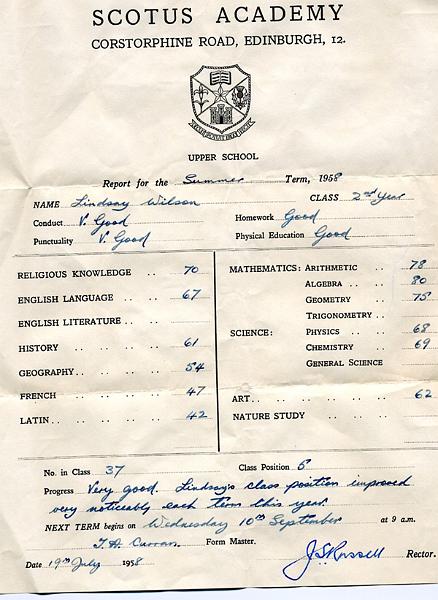 SCOTUS ACADEMY
CORSTORPHINE ROAD, EDINBURGH, 12.
UPPER SCHOOL
Report for the Summer Term, 1958
NAME Lindsay Wilson CLASS 2nd Year
Conduct V. Good Homework Good
Punctuality V. Good Physical Education Good
RELIGIOUS KNOWLEDGE .. .. 70
ENGLISH LANGUAGE .. .. 67
ENGLISH LITERATURE .. ..
HISTORY .. .. .. .. 61
GEOGRAPHY .. .. .. .. 54
FRENCH .. .. .. .. 47
LATIN .. .. .. .. .. 42
MATHEMATICS: ARITHMETIC .. .. 78
ALGEBRA .. .. 80
GEOMETRY .. .. 75
TRIGONOMETRY ..
SCIENCE: PHYSICS .. .. 68
CHEMISTRY .. .. 69
GENERAL SCIENCE
ART .. .. .. .. .. 62
NATURE STUDY .. .. ..
No. in Class 37 Class Position 6
Progress Very good. Lindsay's class position improved
very noticeably each term this year.
NEXT TERM begins on Wednesday 10th September at 9 a.m.
T.A. Curran. Form Master.
J S Russell Rector.
Date 19th July 1958